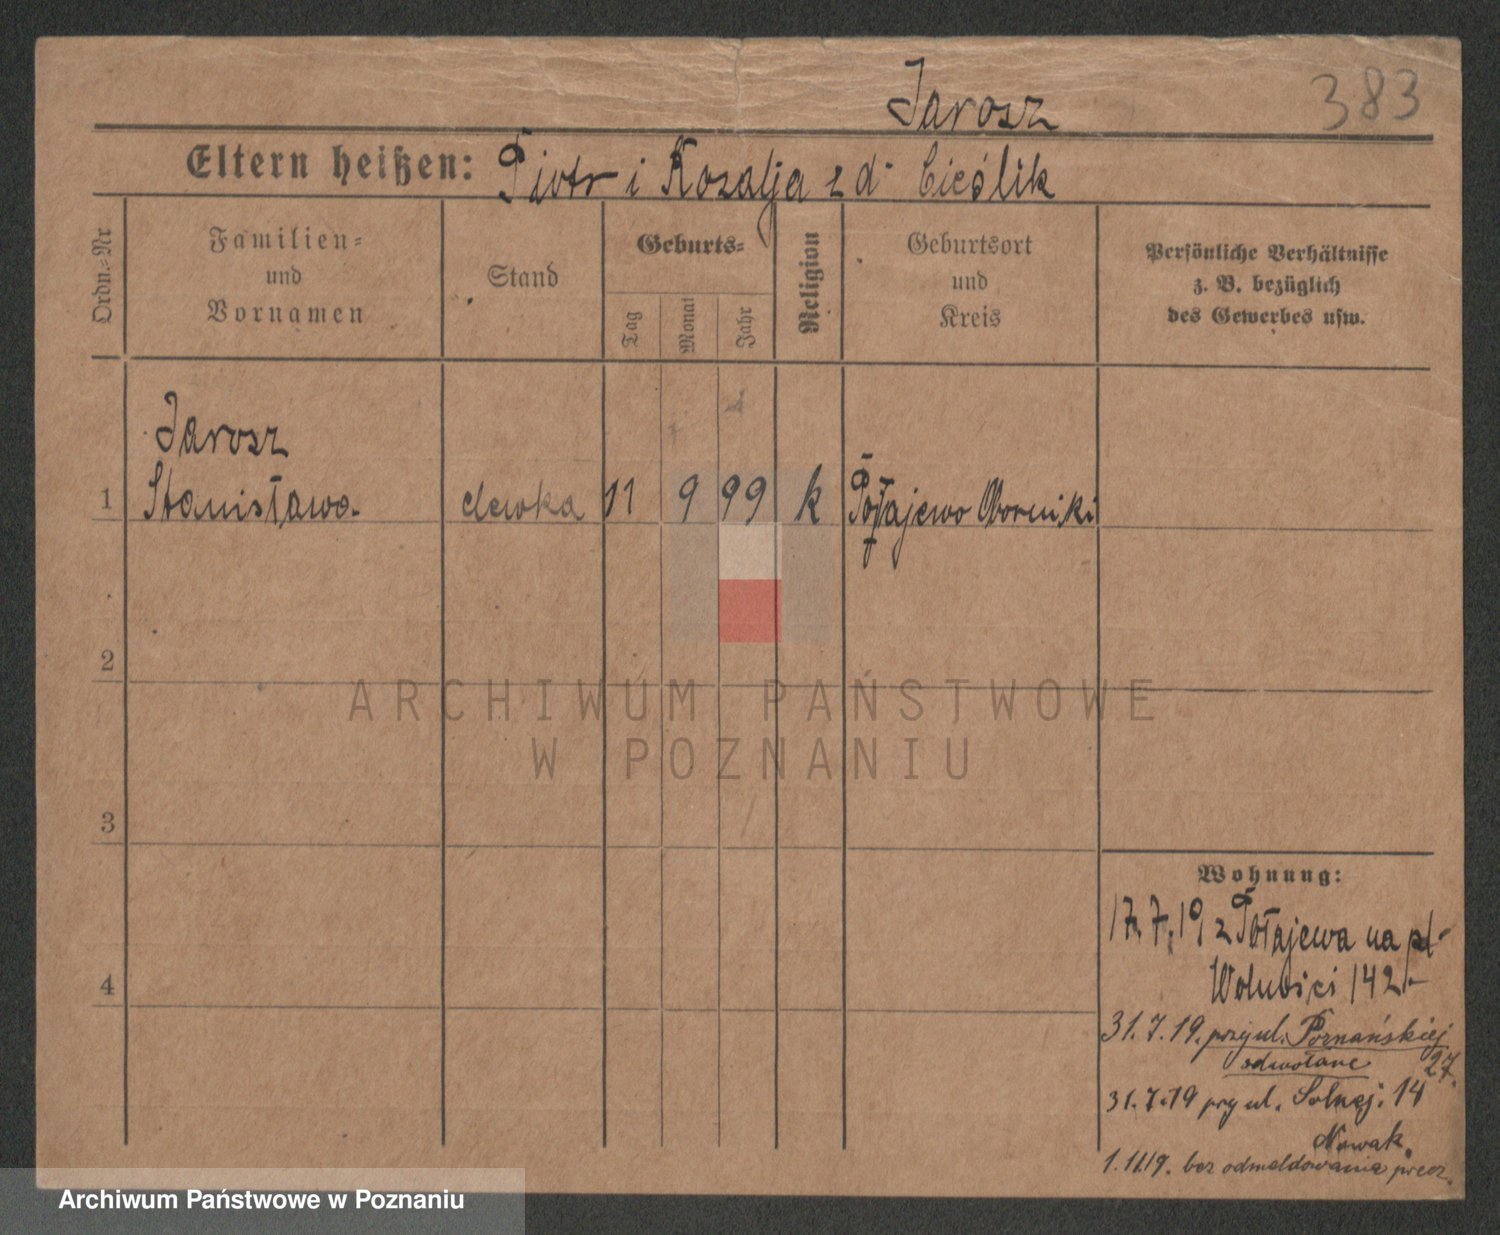 Jarosz
383
Eltern heißen: Piotr i Rozalja z d. Cieślik
Ordn.-Nr
Familien-
und
Vornamen
Stand
Geburts-
Tag
Monat
Jahr
Religion
Geburtsort
und
Kreis
Persönliche Verhältnisse
z. B. bezüglich
des Gewerbes usw.
Jarosz
1 Stanisława. 11 9 99 k Połajewo Oborniki
2
ARCHIWUM PAŃSTWOWE
W POZNANIU
3
Wohnung:
17.7.19 z Połajewa na pl.
142
4
31.7.19. przy ul. Poznańskiej
27.
odwołane
31.7.19 przy ul. Solnej. 14
Nowak.
1.11.19. bez odmeldowania
Archiwum Państwowe w Poznaniu